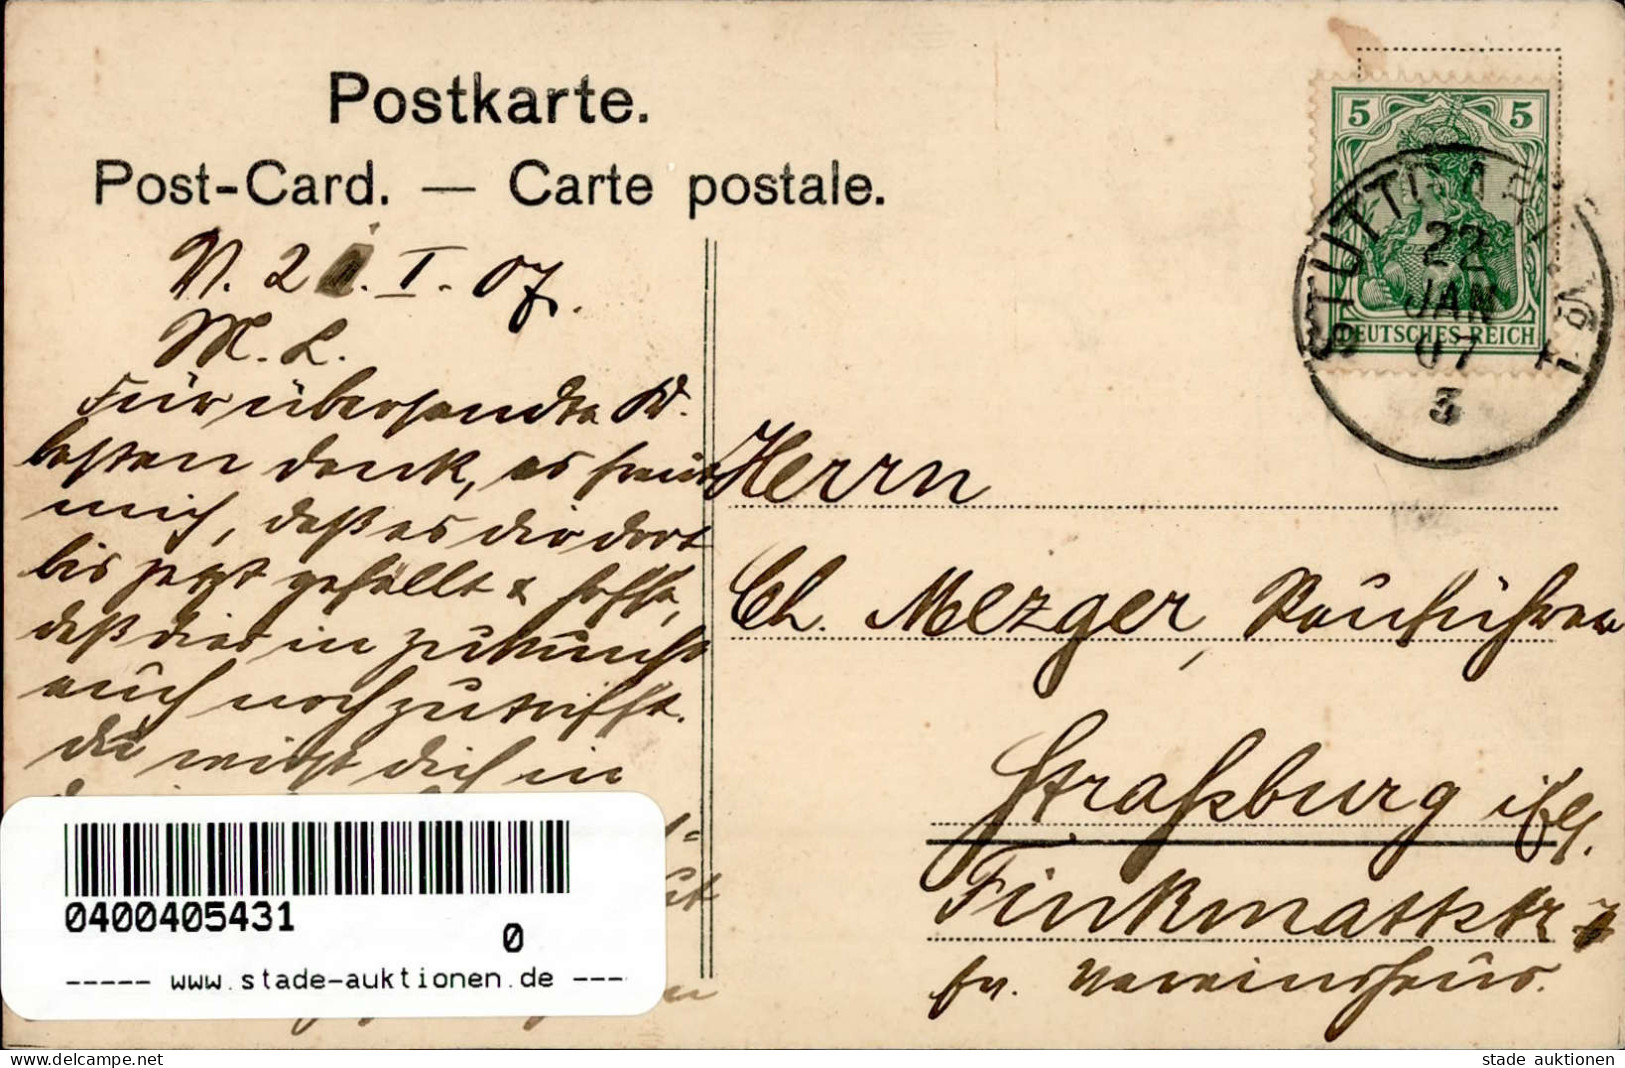 Postkarte.
Post-Card. — Carte postale.
5 5
DEUTSCHES REICH
STUTTGART
22
JAN
07
3
No. 1
N. 21. I. 07.
M. L.
Für übersandte K.
besten Dank, es freut
mich, daß es dir dort
bis jetzt gefällt & hoffe,
daß dies in Zukunft
auch noch zutrifft.
in
Herrn
Ch. Mezger, Bauführer
Straßburg i/Els.
Finkmattstr 7
ev. Vereinshaus.
0400405431
0
----- www.stade-auktionen.de ---
www.delcampe.net
stade auktionen